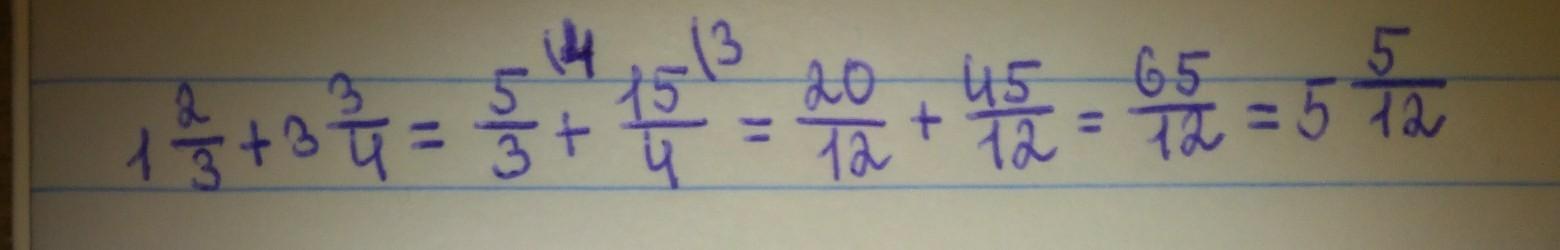 1 2/3 + 3 3/4 = 5/3 \4 + 15/4 \3 = 20/12 + 45/12 = 65/12 = 5 5/12